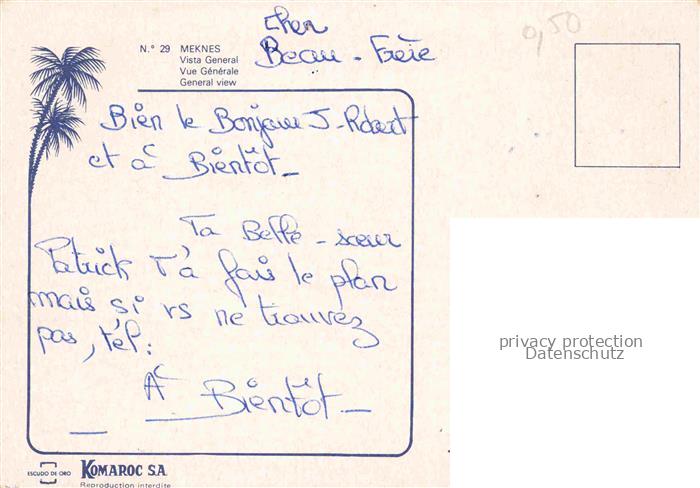 cher
Beau - Frère
0,50
N.° 29 MEKNES
Vista General
Vue Générale
General view
Bien le Bonjour J-Robert
et à Bientôt_
Ta Belle - sœur
Patrick T'à fais le plan
mais si vs ne trouvez
pas, tél :
A Bientôt_
privacy protection
Datenschutz
ESCUDO DE ORO
KOMAROC S.A.
Reproduction interdite